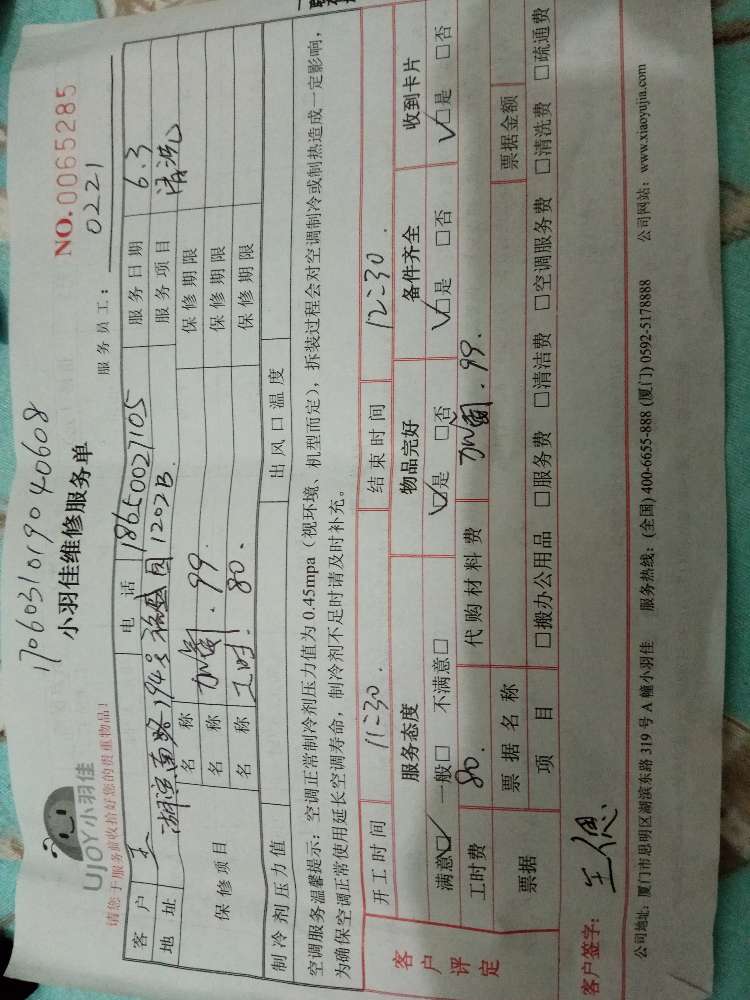 170603101904 0608
UJOY小羽佳
小羽佳维修服务单
NO.0065285
请您于服务前收拾好您的贵重物品!
服务员工: 0221
客户 王 电话 服务日期 6.3
地址 湖滨南路194号 1202B. 服务项目 清洗
保修项目 名称 保修期限
名称 加氟.99. 保修期限
名称 工时.80. 保修期限
制冷剂压力值 出风口温度
空调服务温馨提示:空调正常制冷剂压力值为0.45mpa(视环境、机型而定),拆装过程会对空调制冷或制热造成一定影响,
为确保空调正常使用延长空调寿命,制冷剂不足时请及时补充。
客户评定 开工时间 11:30. 结束时间 12:30.
服务态度 物品完好 备件齐全 收到卡片
满意□ 一般□ 不满意□ □是 □否 □是 □否 □是 □否
工时费 80. 代购材料费 加氟.99.
票据 票据名称 票据金额
项目 □搬办公用品 □服务费 □清洁费 □空调服务费 □清洗费 □疏通费
客户签字: 王
公司地址:厦门市思明区湖滨东路319号A幢小羽佳 服务热线:(全国)400-6655-888 (厦门)0592-5178888 公司网站:www.xiaoyujia.com